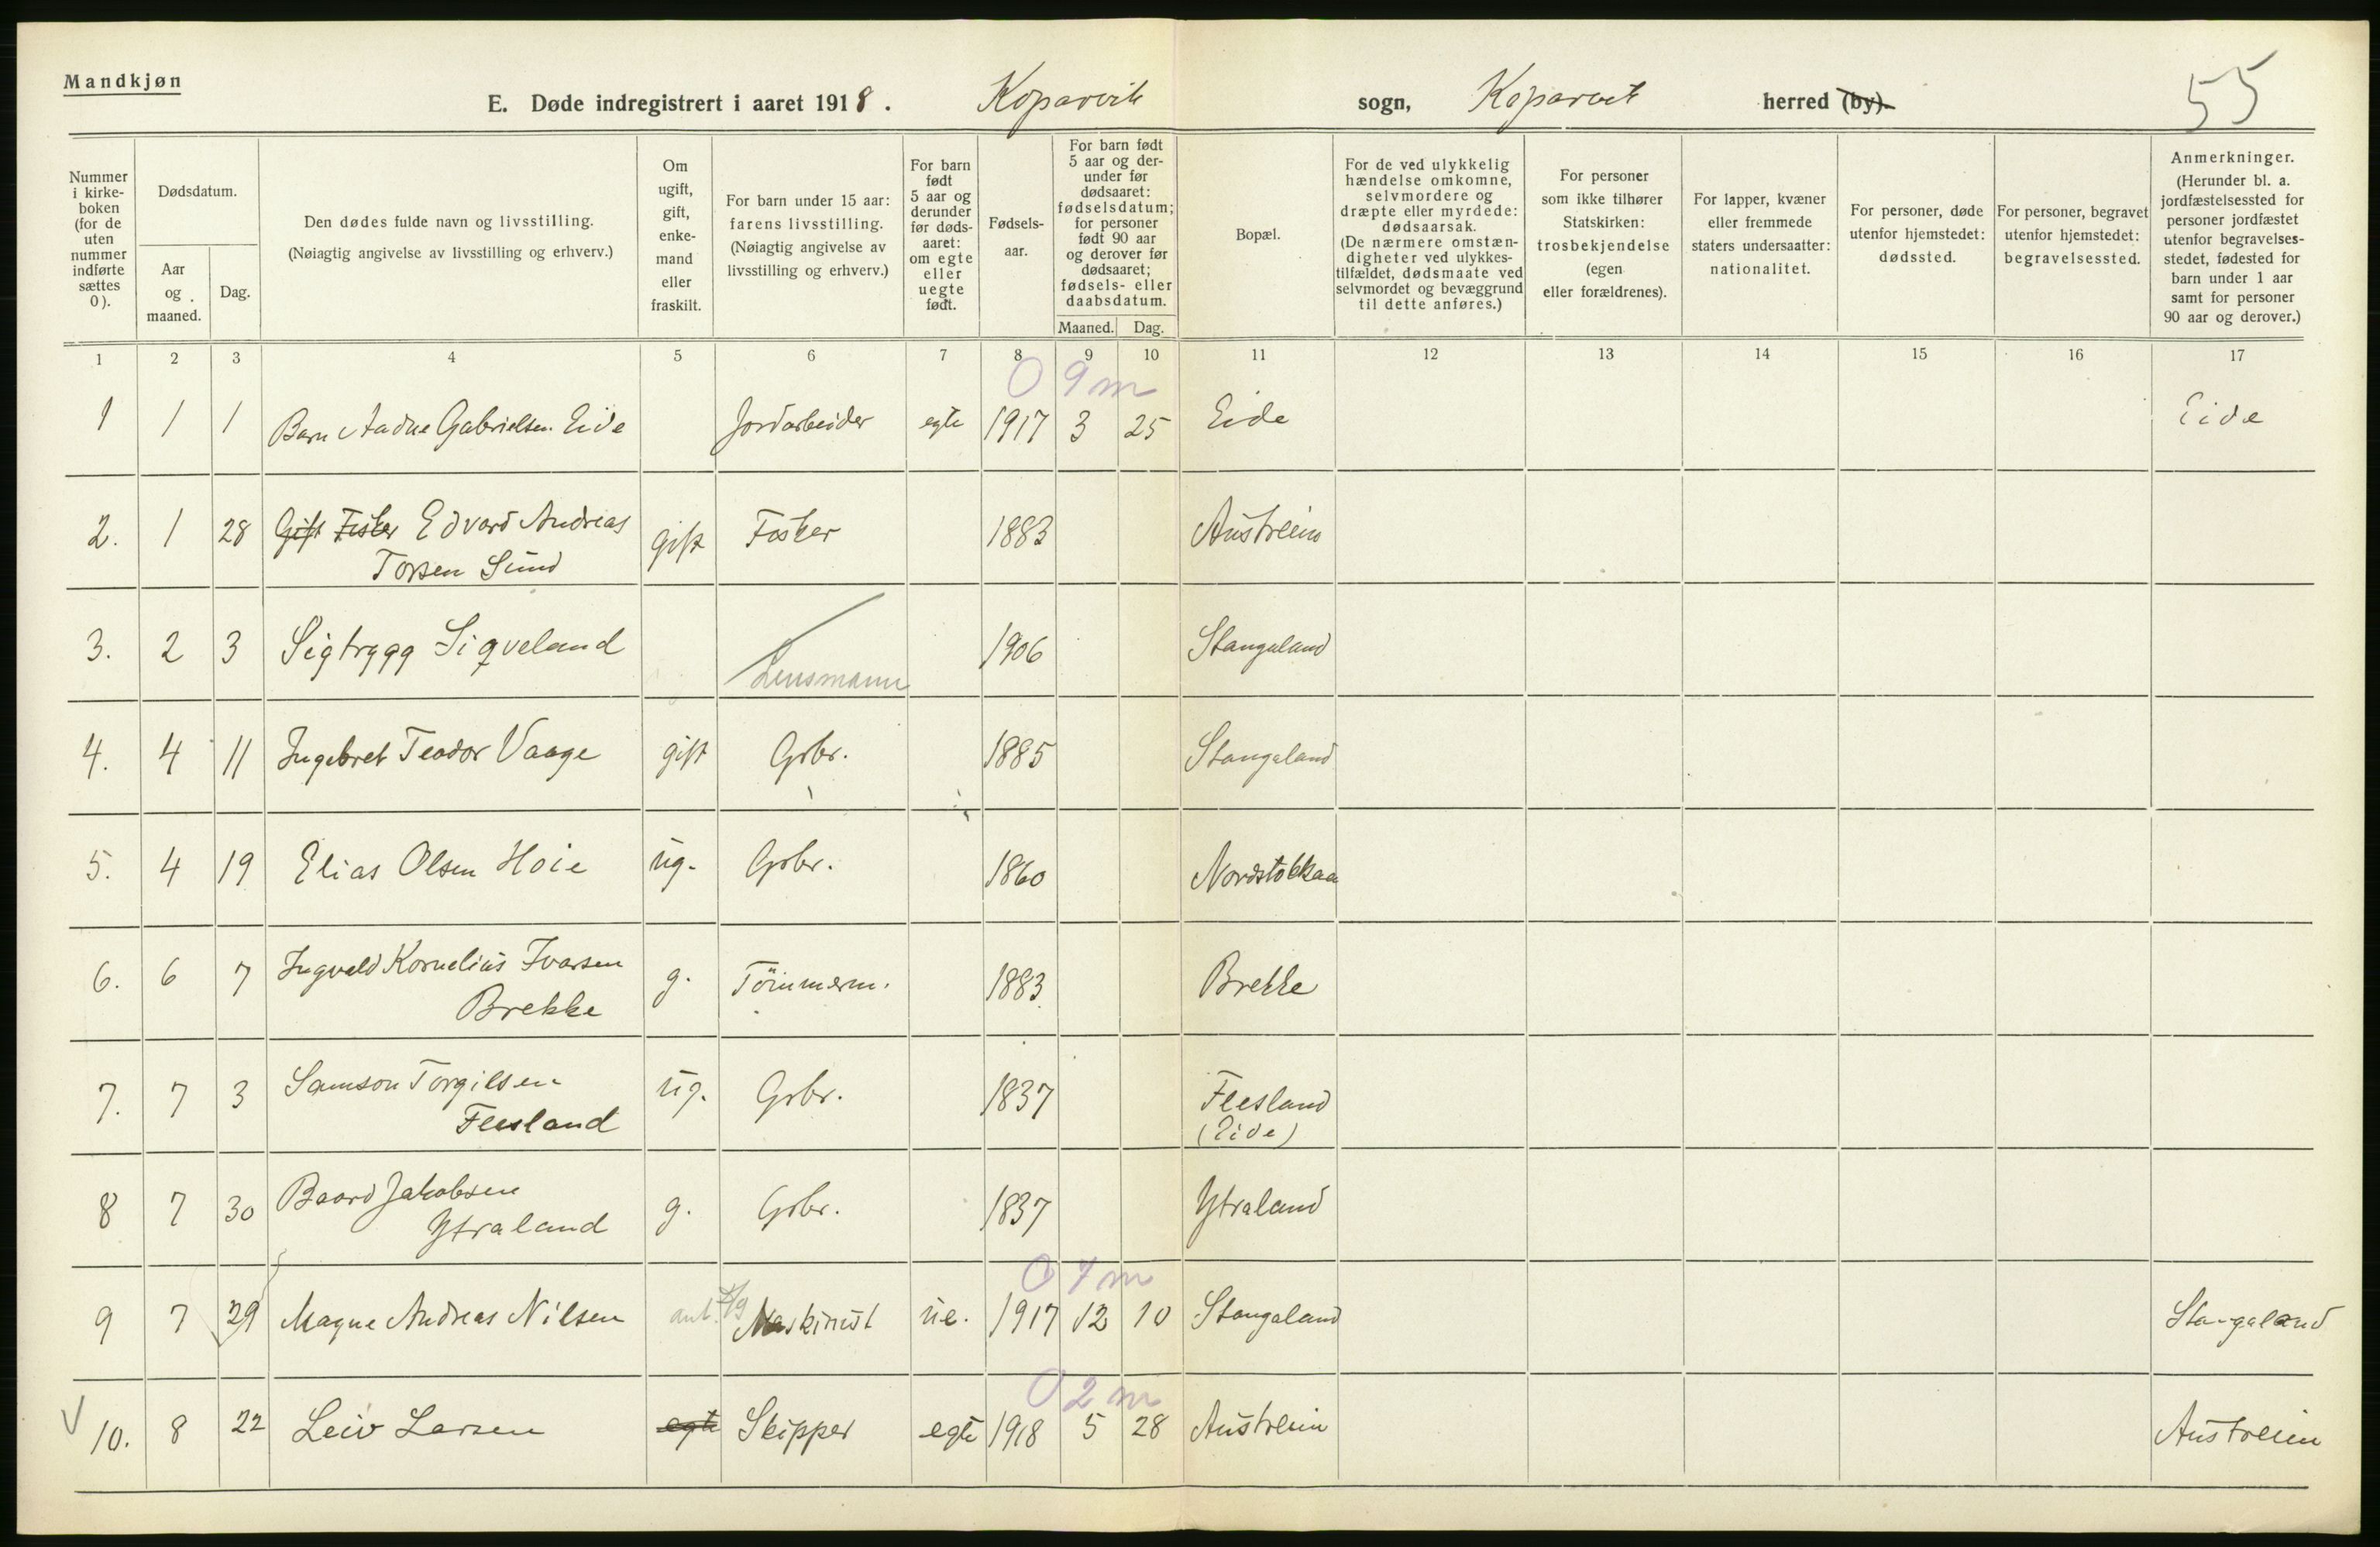 Mandkjøn
E. Døde indregistrert i aaret 1918. Kopervik sogn, Kopervik herred (by).
55
Nummer i kirkeboken (for de uten nummer indførte sættes 0).
Dødsdatum.
Aar og maaned.
Dag.
Den dødes fulde navn og livsstilling.
(Nøiagtig angivelse av livsstilling og erhverv.)
Om ugift, gift, enkemand eller fraskilt.
For barn under 15 aar: farens livsstilling.
(Nøiagtig angivelse av livsstilling og erhverv.)
For barn født 5 aar og derunder før dødsaaret: om egte eller uegte født.
Fødselsaar.
For barn født 5 aar og derunder før dødsaaret: fødselsdatum; for personer født 90 aar og derover før dødsaaret; fødsels- eller daabsdatum.
Maaned. Dag.
Bopæl.
For de ved ulykkelig hændelse omkomne, selvmordere og dræpte eller myrdede: dødsaarsak.
(De nærmere omstændigheter ved ulykkestilfældet, dødsmaate ved selvmordet og bevæggrund til dette anføres.)
For personer som ikke tilhører Statskirken: trosbekjendelse (egen eller forældrenes).
For lapper, kvæner eller fremmede staters undersaatter: nationalitet.
For personer, døde utenfor hjemstedet: dødssted.
For personer, begravet utenfor hjemstedet: begravelsessted.
Anmerkninger.
(Herunder bl. a. jordfæstelsessted for personer jordfæstet utenfor begravelsesstedet, fødested for barn under 1 aar samt for personer 90 aar og derover.)
1 2 3 4 5 6 7 8 9 10 11 12 13 14 15 16 17
0 9 m
1 1 1 Barn Aadne Gabrielsen Eide Jordarbeider egte 1917 3 25 Eide Eide
2. 1 28 Gift Fisker Edvard Andreas gift Fisker 1883 Austreim
Torsen Sund
3. 2 3 Sigtrygg Sigveland Lensmann 1906 Stangeland
4. 4 11 Ingebret Teodor Vaage gift Grbr. 1885 Stangeland
5. 4 19 Elias Olsen Hoie ug. Grbr. 1860 Nordstokkaa
6. 6 7 Ingvald Kornelius Ivarsen g. Tömmerm. 1883 Brekke
Brekke
7. 7 3 Samson Torgilsen ug. Grbr. 1837 Fleesland
Fleesland (Eide)
8 7 30 Baard Jakobsen g. Grbr. 1837 Ytraland
Ytraland
0 7 m
9 7 29 Magne Andreas Nilsen Maskinist ue. 1917 12 10 Stangaland Stangaland
0 2 m
10. 8 22 Leiv Larsen egte Skipper egte 1918 5 28 Austreim Austreim